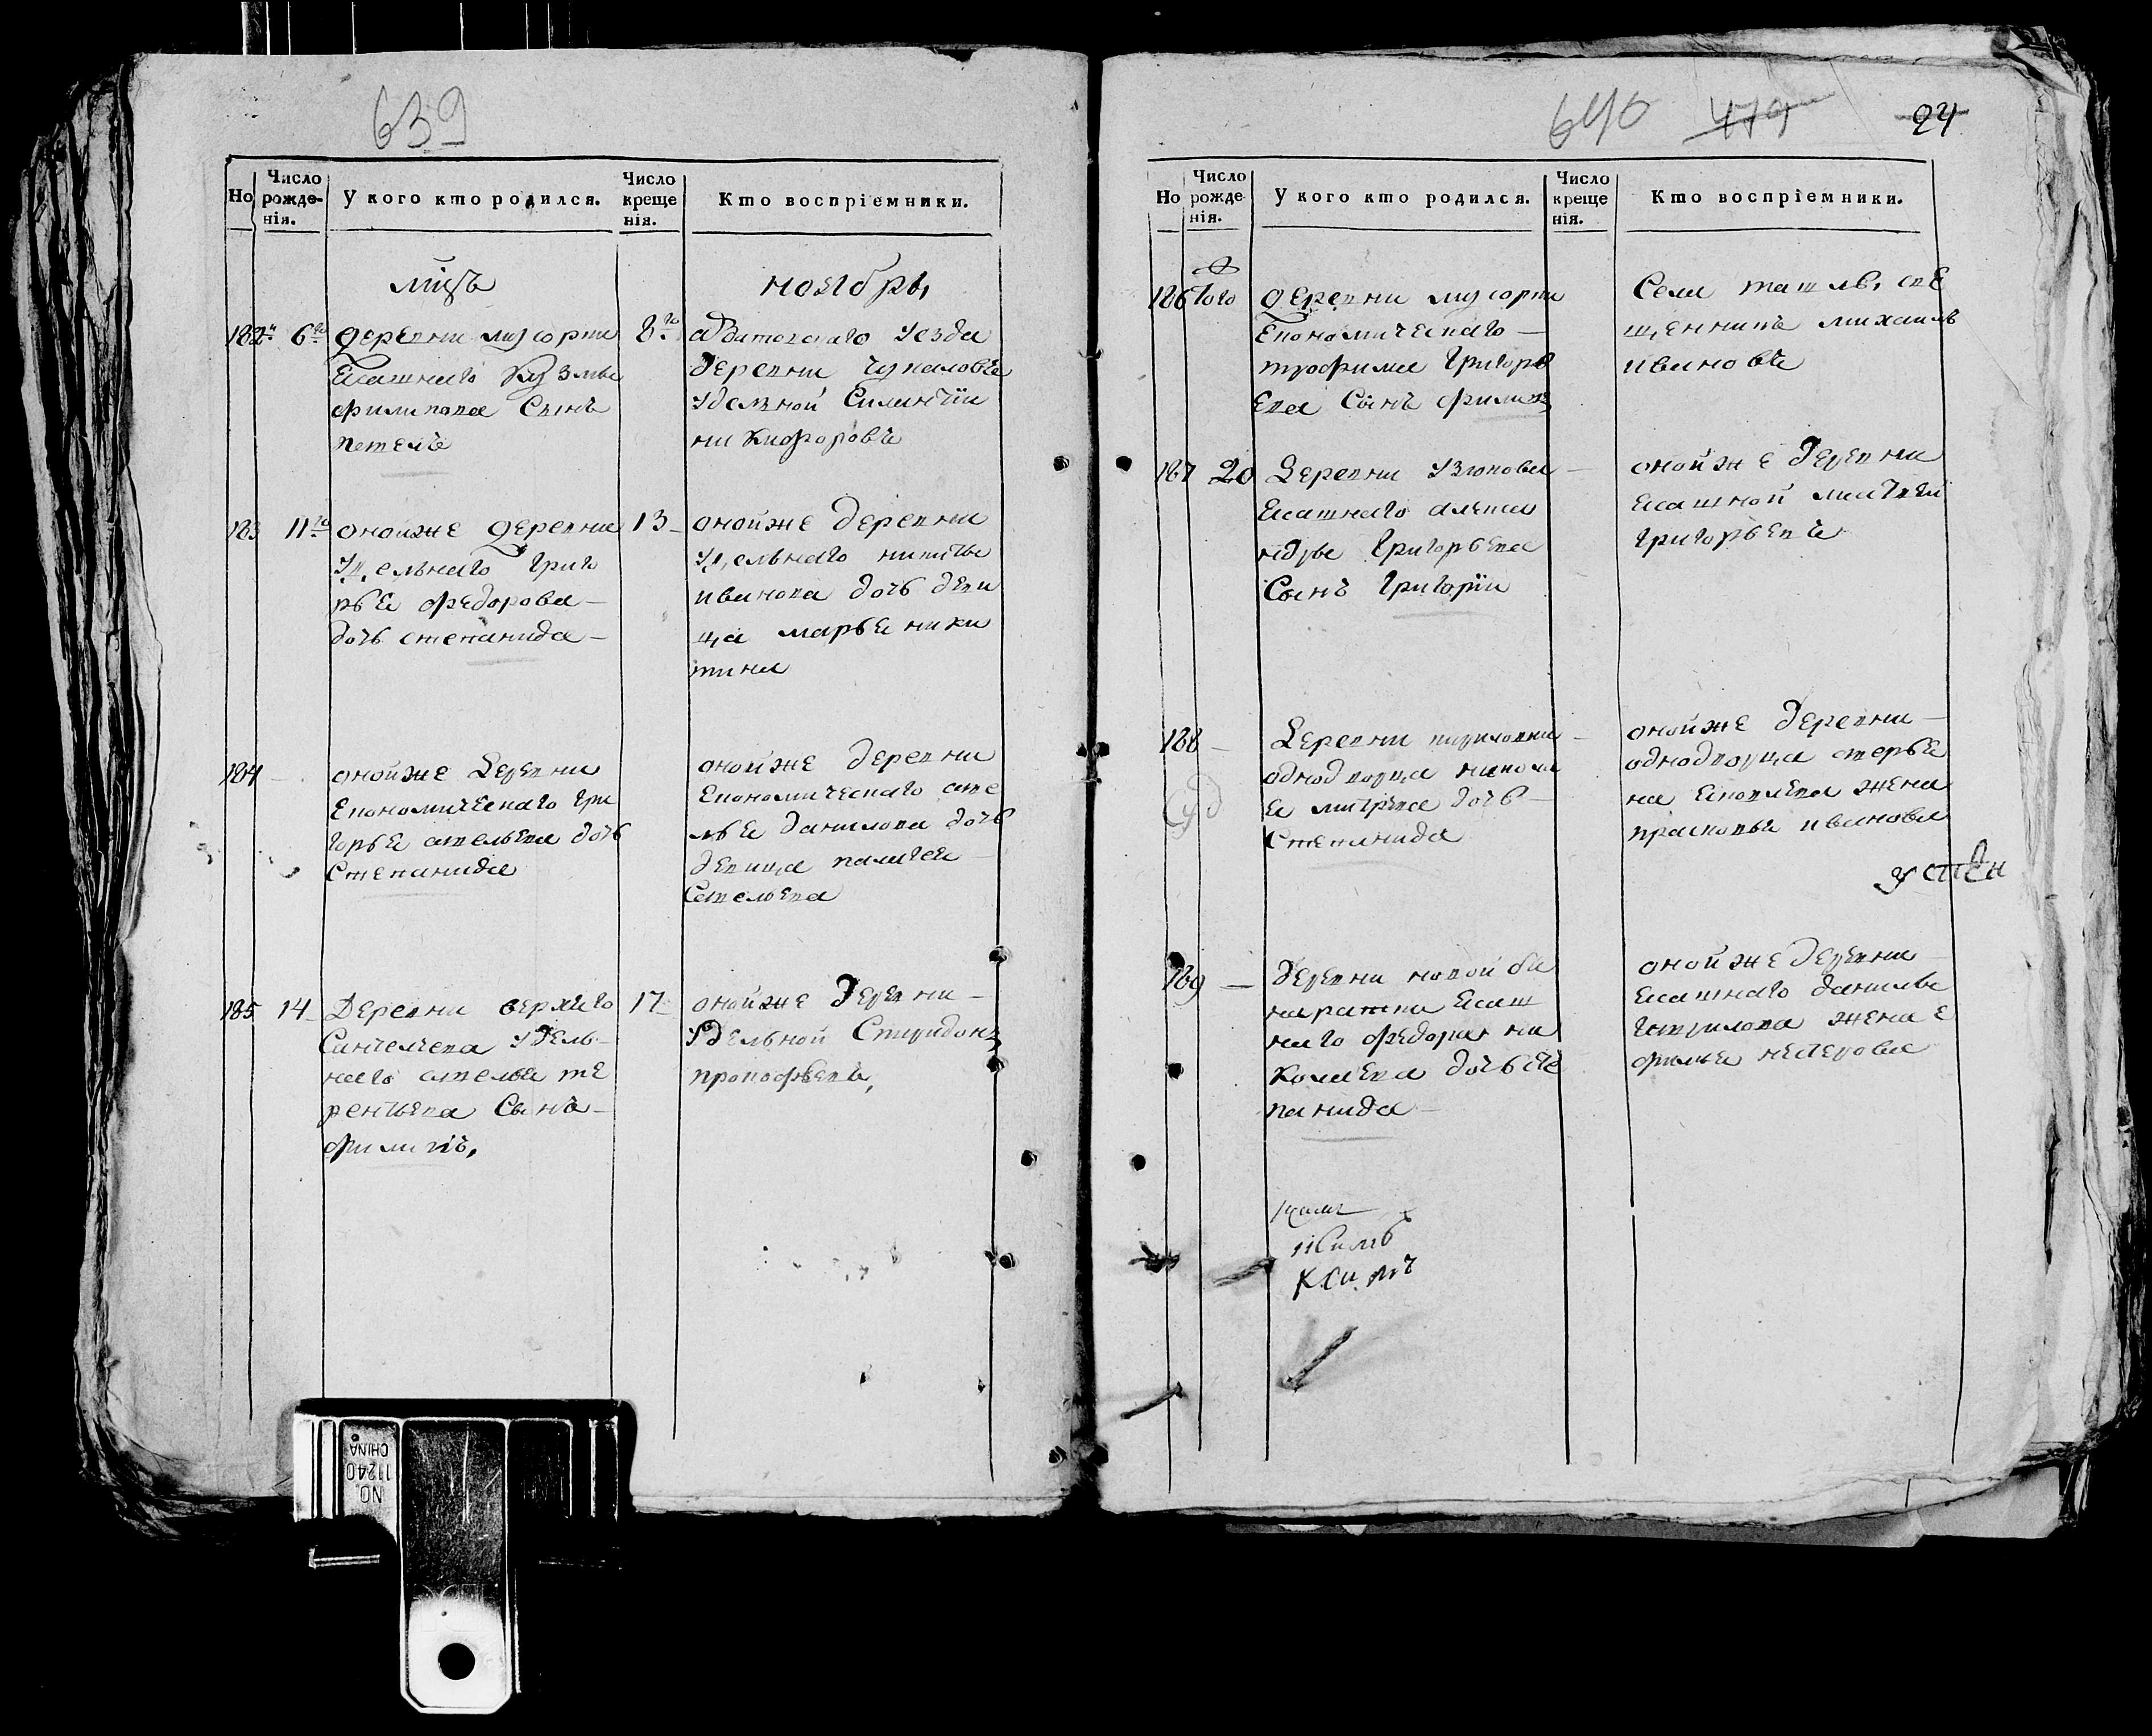 639
Но
Число рожде-нія.
У кого кто родился.
Число креще нія.
Кто воспріемники.
мцъ
ноябрь
182й
6го
деревни мусорки
Ясашнаго Кузмы
филипова Сынъ
8го
Удельной
никифоровъ
183
11го
онойже деревни
удельнаго григо
рья федорова
дочь степанида
13
онойже деревни
удельнаго никиты
иванова дочь деви
ца марья ники
тина
184
онойже деревни
Економическаго гри
горья савельева дочь
Степанида
онойже деревни
Економическаго саве
лья данилова дочь
девица
Савельева
185
14
Деревни верхнего
Санчелеева удель
наго савелья те
рентьева Сынъ
филипъ,
17
онойже деревни
Удельной Спиридонъ
прокофьевъ,
640 479 24
Но
Число рожде нія.
У кого кто родился.
Число креще нія.
Кто воспріемники.
186
того
деревни мусорки
Економическаго
трофима григорь
ева Сынъ филипъ
Села ташлы, свя
щенникъ михаилъ
ивановъ
187
20
Деревни узюкова
Ясашнаго алекса
ндры григорьева
Сынъ григорiи
онойже деревни
Ясашной матвей
григорьевъ
188
Деревни кириловки
однодворца никола
я дочь
Степанида
онойже деревни
однодворца
на яковлева жена
прасковья иванова
189
деревни новой би
наратки Ясаш
наго федора ни
колаева дочь сте
панида
онойже деревни
Ясашнаго данилы
гаврилова жена е
фимья нестерова
NO.
11240
CHINA